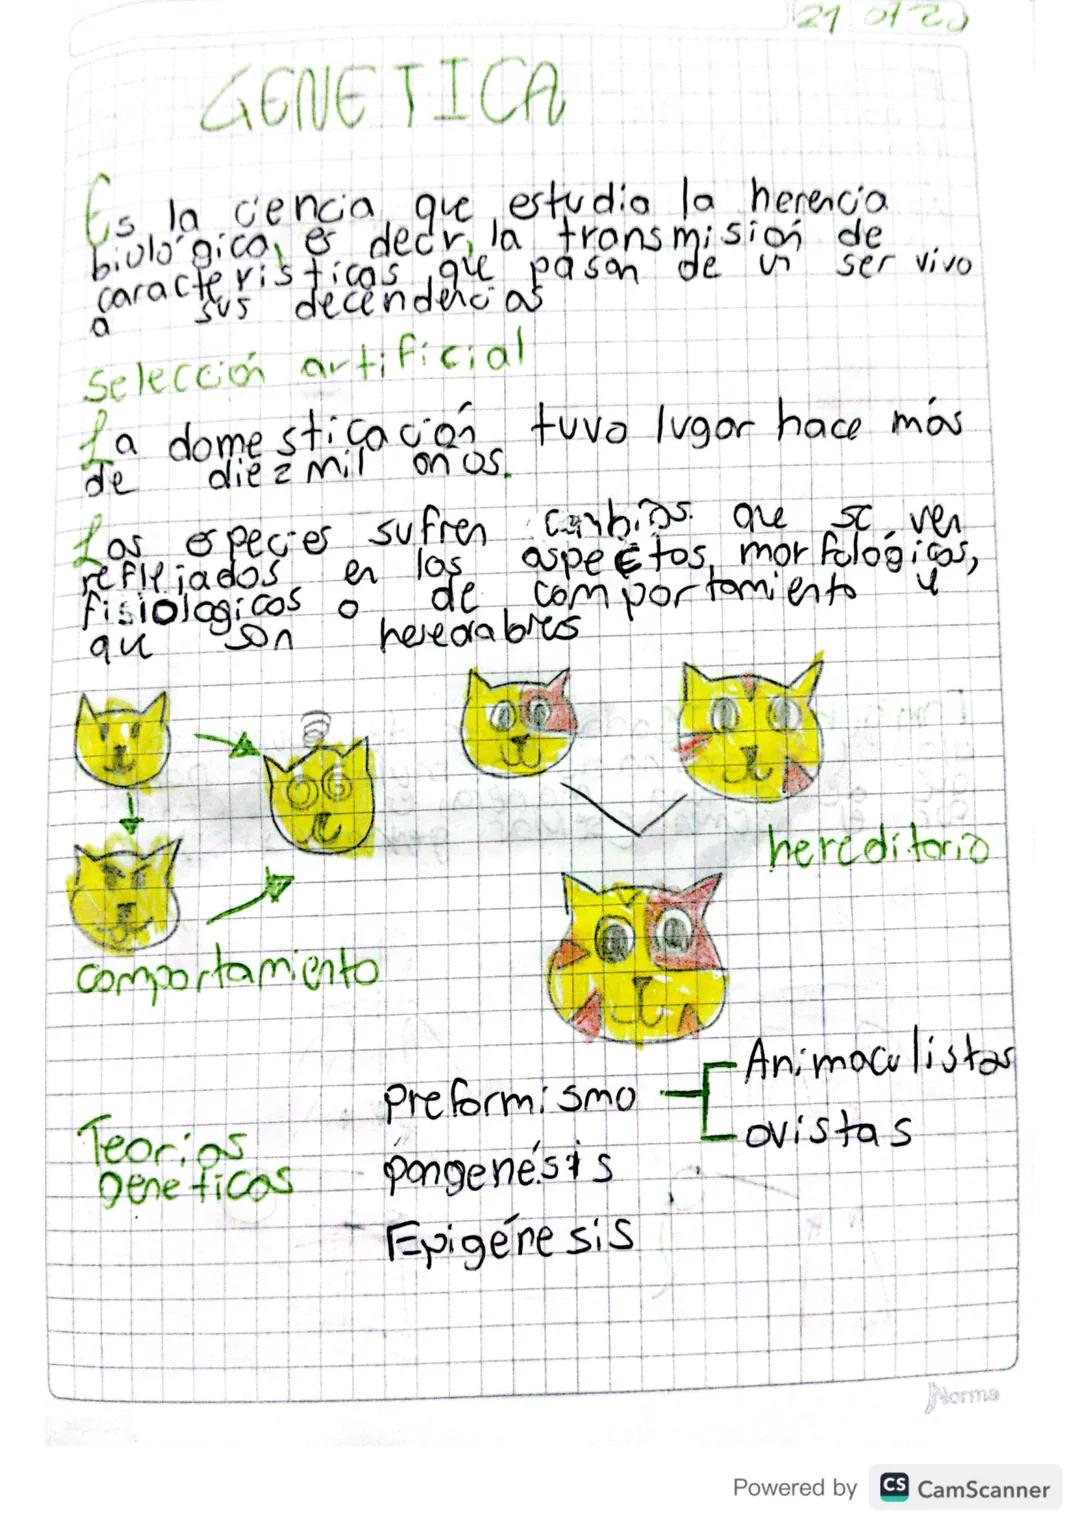 21 01 20
GENETICA
Es la ciencia que estudia la herencia
biológica, es decir, la transmisión de
caracteristicas que pasan de un ser vivo
a sus decendencias
Selección artificial
La domesticación tuvo lugar hace más
de diez mil años.
Las especies sufren cambios que se ven
reflejiados en los aspectos morfológicos,
fisiologicos o de comportamiento y
que son heredables
hereditario
comportamiento
preformismo
Animaculistas
ovistas
Teorias
geneticas
pangenésis
Epigénesis
Norma
Powered by CS CamScanner